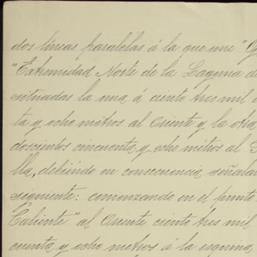 dos líneas paralelas á la que une "
"Extremidad Norte de la Laguna d
situadas la una, á ciento tres mil
ta y ocho metros al Oriente y la otra
doscientos cincuenta y ocho metros al
lla, debiendo en consecuencia, señalar
siguiente: comenzando en el punto
Caliente" al Oriente ciento tres mil
cuenta y ocho metros á la esquina,